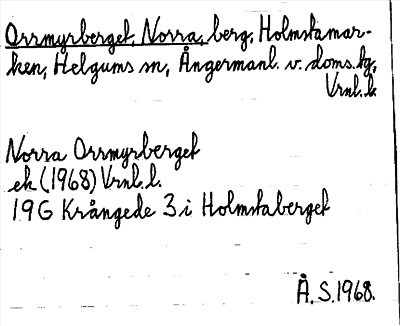 Orrmyrberget, Norra, berg, Holmstamar-
ken, Helgums sn, Ångermanl. v. doms.tg,
Vrnl. l.
Norra Orrmyrberget
ek (1968) Vrnl. l.
19G Krångede 3 i Holmstaberget
Å. S. 1968.